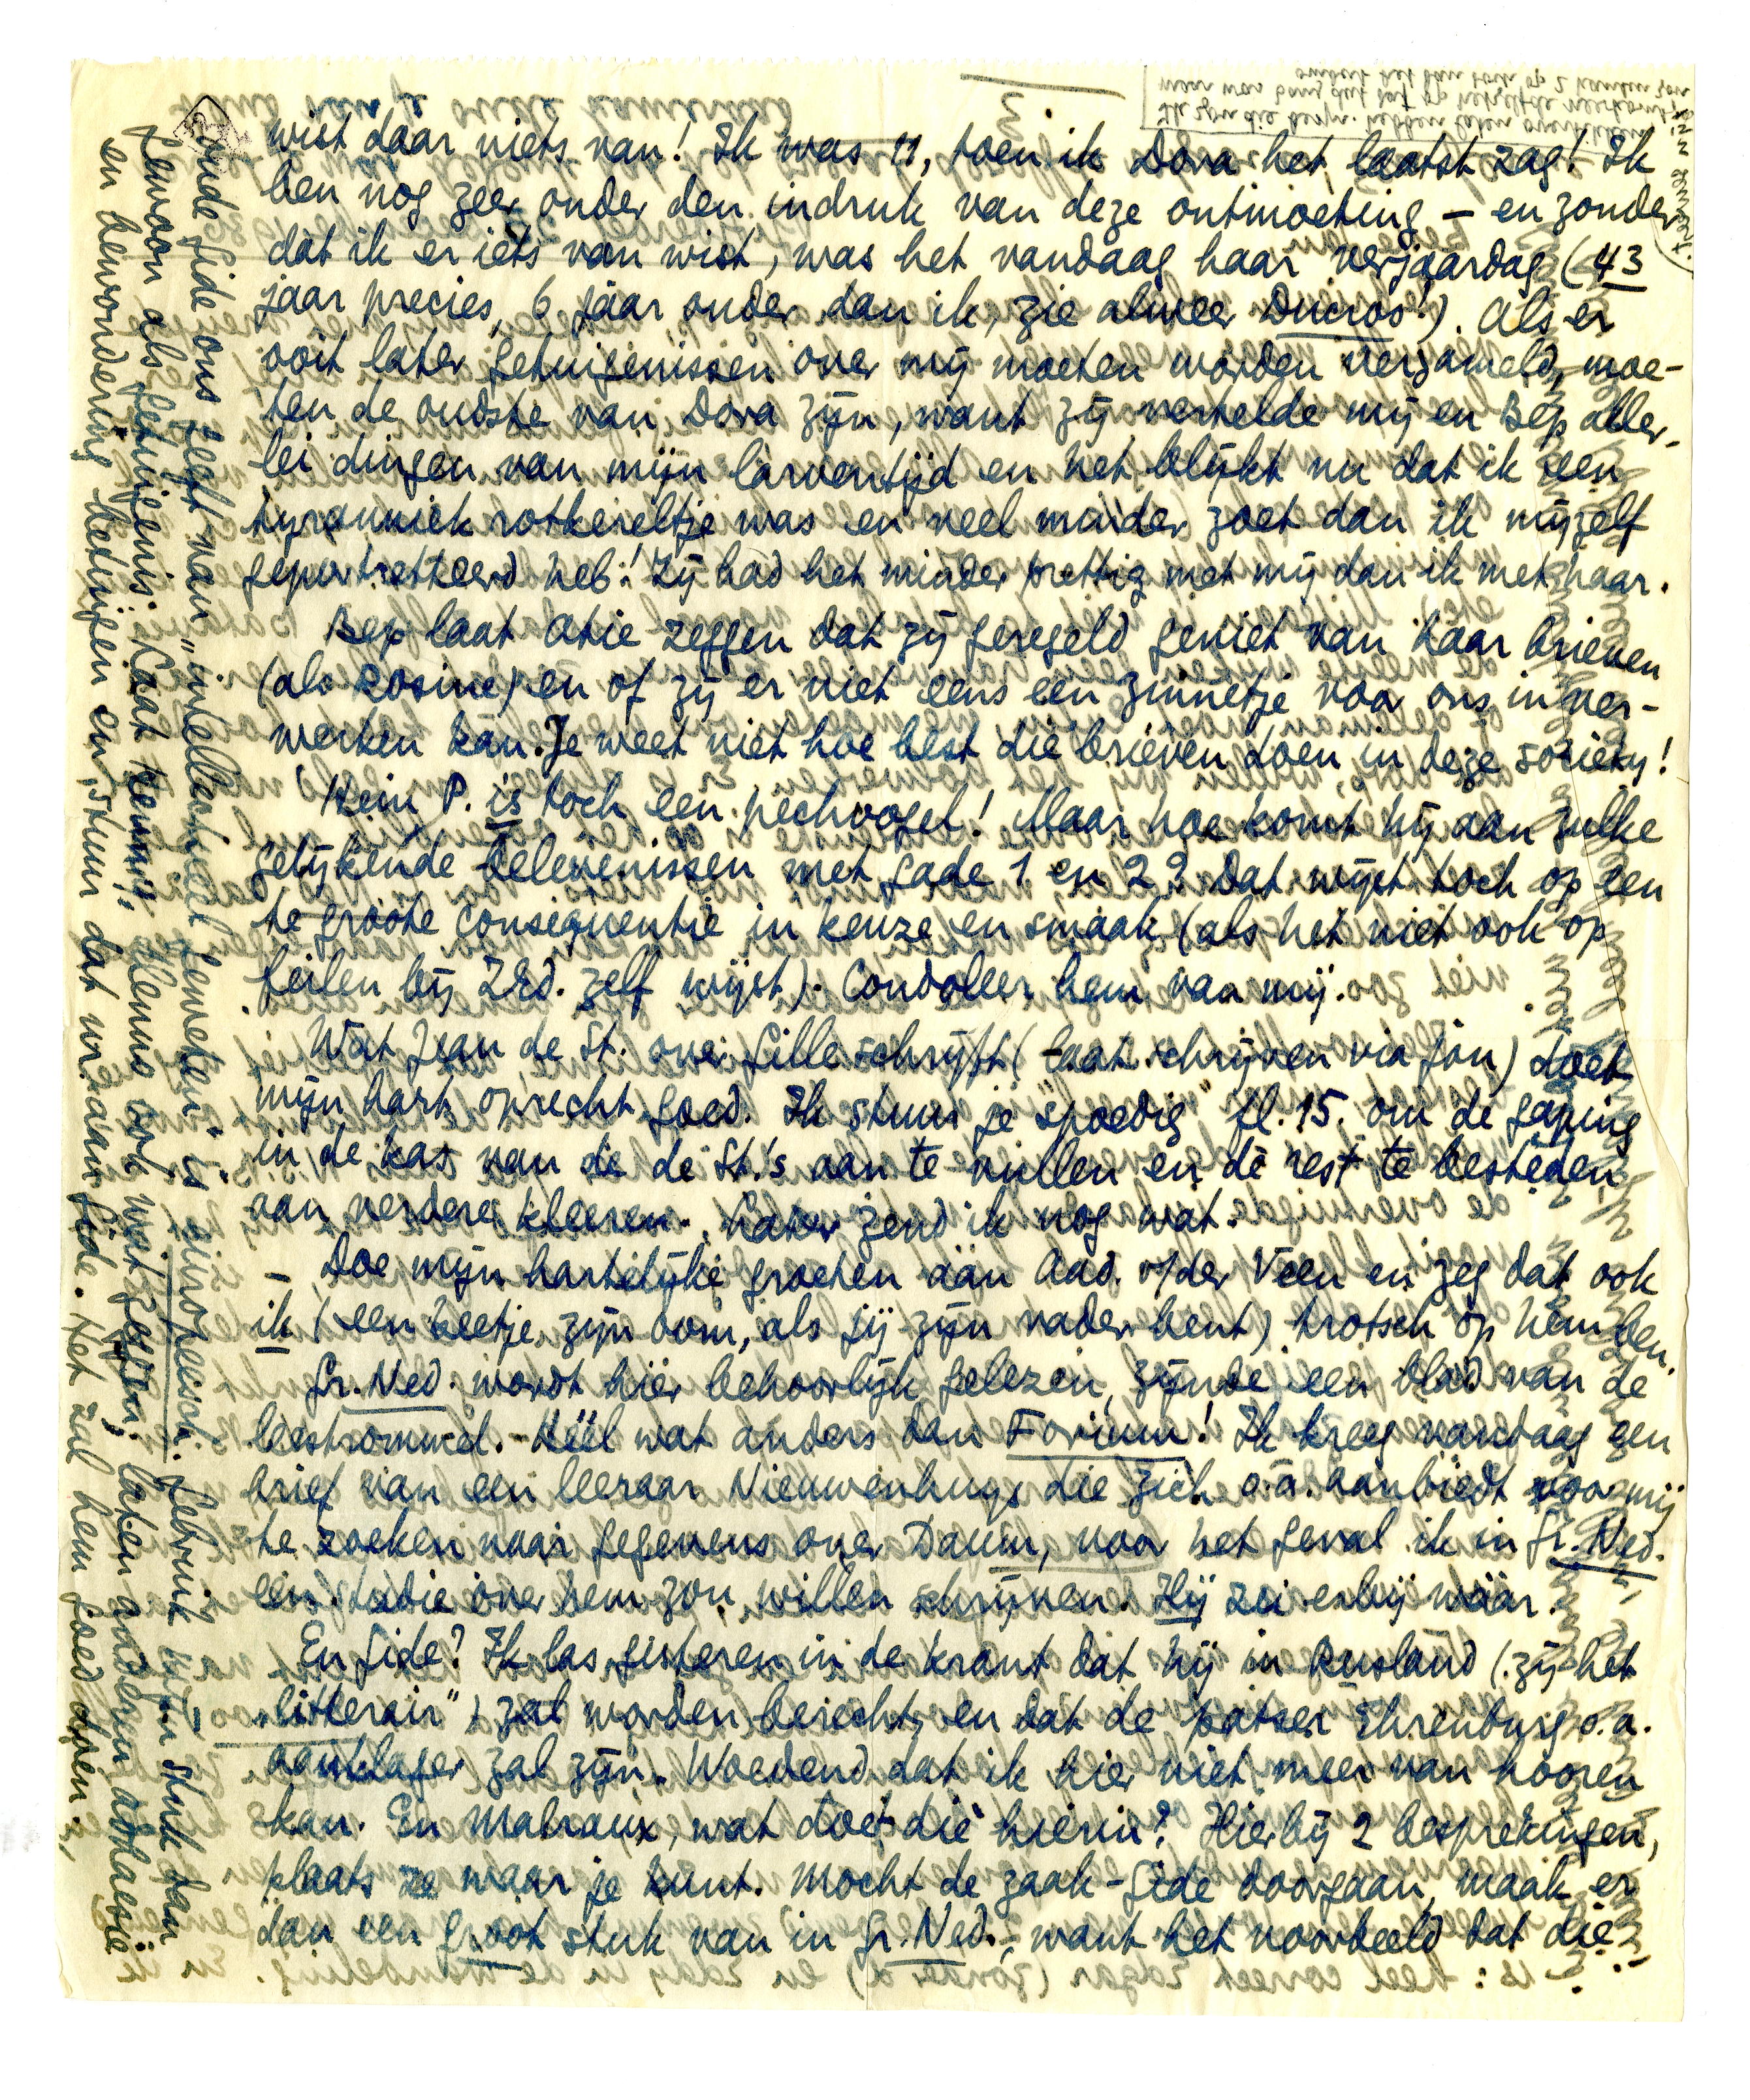 wist daar niets van! Ik was 11, toen ik Dora het laatst zag! Ik
ben nog zeer onder den indruk van deze ontmoeting – en zonder
dat ik er iets van wist, was het vandaag haar verjaardag (43
jaar precies, 6 jaar ouder dan ik, zie alweer Ducros!). Als er
ooit later getuigenissen over mij moeten worden verzameld, moe-
ten de oudste van Dora zijn, want zij vertelde mij en Bep aller-
lei dingen van mijn larventijd en het blijkt nu dat ik een
tyranniek rotkereltje was en veel minder zoet dan ik mijzelf
geportretteerd heb! Zij had het minder prettig met mij dan ik met haar.
Bep laat Atie zeggen dat zij geregeld geniet van haar brieven
(als Rosine) en of zij er niet eens een zinnetje voor ons in ver-
werken kan. Je weet niet hoe best die brieven doen in deze soziety!
Hein P. is toch een pechvogel! Maar hoe komt hij aan zulke
gelijkende belevenissen met gade 1 en 2? Dat wijst toch op een
te groote consequentie in keuze en smaak (als het niet ook op
feilen bij ZEd. zelf wijst). Condoleer hem van mij.
Wat Jean de St. over Gille schrijft (laat schrijven via jou) doet
mijn hart oprecht goed. Ik stuur je "spoedig" fl. 15. om de gaping
in de kas van de de St.'s aan te vullen en de rest te besteden
aan verdere kleeren. Later zend ik nog wat.
– Doe mijn hartelijke groeten aan Aad. v/der Veen en zeg dat ook
ik (een beetje zijn oom, als jij zijn vader bent) trotsch op hem ben.
Gr. Ned. wordt hier behoorlijk gelezen, zijnde een blad van de
leestrommel. – Héél wat anders dan Forum! Ik kreeg vandaag een
brief van een leeraar Nieuwenhuys die zich o.a. aanbiedt voor mij
te zoeken naar gegevens over Daum, voor het geval ik in Gr. Ned.
een studie over hem zou willen schrijven. Hij zei erbij wáár.
En Gide? Ik las gisteren in de krant dat hij in Rusland (zij het
„litterair") zal worden berecht, en dat de patser Ehrenburg o.a.
aanklager zal zijn. Woedend dat ik hier niet meer van hooren
kan. En Malraux, wat doet die hierin? Hierbij 2 besprekingen,
plaats ze waar je kunt. Mocht de zaak-Gide doorgaan, maak er
dan een groot stuk van in Gr. Ned., want het voorbeeld dat die
oude Gide ons geeft van „intellectueel geweten" is enropeesch. Gebruik mijn stuk dan
gewoon als getuigenis. Laat Menno, Menno ook wat zeggen, laten anderen adhaesie
en bewondering betuigen en stuur dat nr. aan Gide. Het zal hem goed doen.
Ik zou die belijn. hebben laten
maar was bang dat dat op hetzelfde neerkomt,
omdat het dan toch op 2 kanten zou